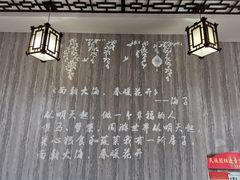 《面朝大海,春暖花开》
——海子
从明天起,做一个幸福的人
喂马,劈柴,周游世界从明天起,
关心粮食和蔬菜我有一所房子
面朝大海,春暖花开